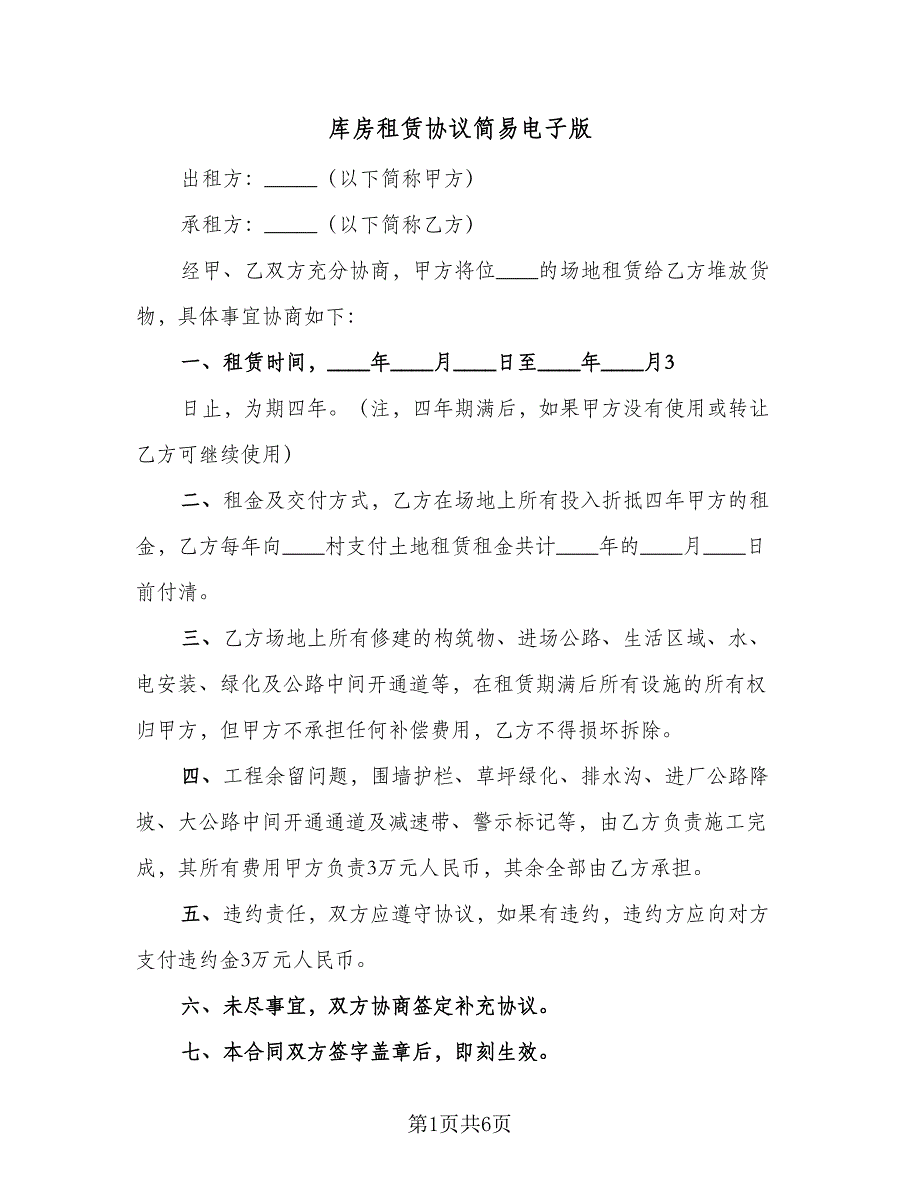 库房租赁协议简易电子版
出租方：_____（以下简称甲方）
承租方：_____（以下简称乙方）
经甲、乙双方充分协商，甲方将位____的场地租赁给乙方堆放货
物，具体事宜协商如下：
一、租赁时间，____年____月____日至____年____月3
日止，为期四年。（注，四年期满后，如果甲方没有使用或转让
乙方可继续使用）
二、租金及交付方式，乙方在场地上所有投入折抵四年甲方的租
金，乙方每年向____村支付土地租赁租金共计____年的____月____日
前付清。
三、乙方场地上所有修建的构筑物、进场公路、生活区域、水、
电安装、绿化及公路中间开通道等，在租赁期满后所有设施的所有权
归甲方，但甲方不承担任何补偿费用，乙方不得损坏拆除。
四、工程余留问题，围墙护栏、草坪绿化、排水沟、进厂公路降
坡、大公路中间开通通道及减速带、警示标记等，由乙方负责施工完
成，其所有费用甲方负责3万元人民币，其余全部由乙方承担。
五、违约责任，双方应遵守协议，如果有违约，违约方应向对方
支付违约金3万元人民币。
六、未尽事宜，双方协商签定补充协议。
七、本合同双方签字盖章后，即刻生效。
第1页共6页